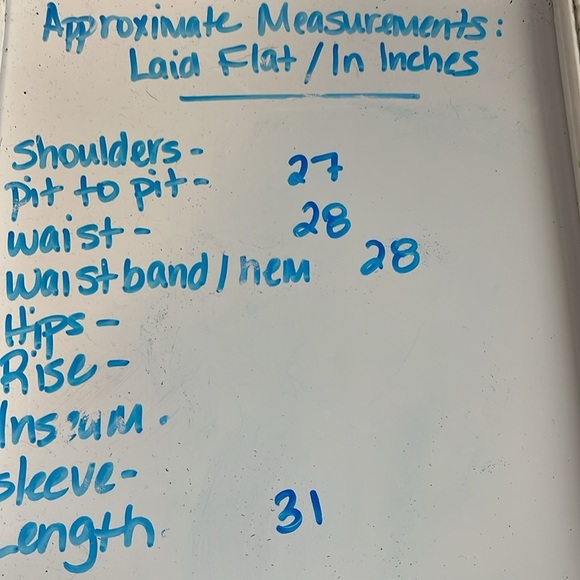 Approximate Measurements:
Laid Flat / In Inches
Shoulders -
pit to pit - 27
waist - 28
waistband / hem 28
Hips -
Rise -
Inseam -
sleeve -
Length 31